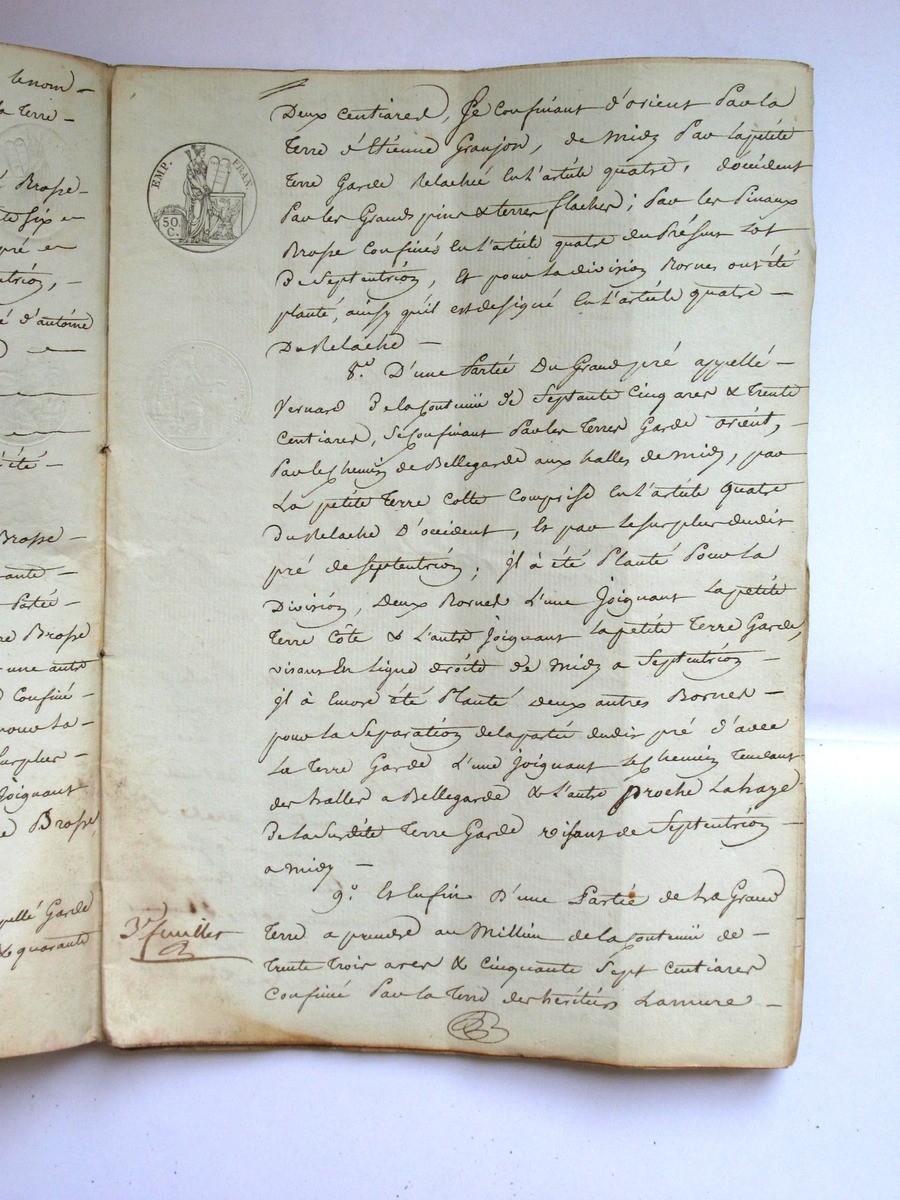 lenom –
la Terre –
Brosse –
six en
pré en
–
é d'antoine
été –
Brosse –
ante –
Partie –
Brosse
une autre
Confiné –
pour La –
Surplus –
Joignant
Brosse
appellé Garde
& quarante
EMP. FRAN
50 C.
Deux centiares, Se confinant d'orient Par la
Terre d'Etienne Granjon, de midy Par la petite
Terre Garde Relachée En l'article quatre, d'occident
Par les Grands pins & terres flaches; Par les Pinaux
Brosse Confinés En l'article quatre du Présent Lot
De Septentrion, Et pour la division Bornes ont été
planté, ainsy qu'il est designé En l'article quatre –
Du Relache –
8.e D'une Partie Du Grand pré appellé –
Vernard De la Contenüe de Septante Cinq ares & Trente
Centiares, Se Confinant Par les Terres Garde orient, –
Par le Chemin de Bellegarde aux halles de midy, par
La petite Terre Cotte Comprise En l'article Quatre
Du Relache D'occident, Et par le surplus dudit
pré de septentrion; il à été Planté Pour La
Division, Deux Bornes L'une Joignant La petite
Terre Côte & L'autre Joignant La petite Terre Garde,
visans En Ligne droite de midy a Septentrion –
il à Encore été Planté Deux autres Bornes –
pour la Separation de la partie dudit pré d'avec
La Terre Garde L'une Joignant Le Chemin Tendant
des halles a Bellegarde & L'autre proche La haye
De la Susdite Terre Garde visant de Septentrion –
a midy –
9.o Et Enfin D'une Partie de La Grand
Terre a prendre au Millieu de la Contenüe de –
Trente Trois ares & Cinquante Sept Centiares
Confiné Par la Terre des héritiers Lamure –
3.e feuillet